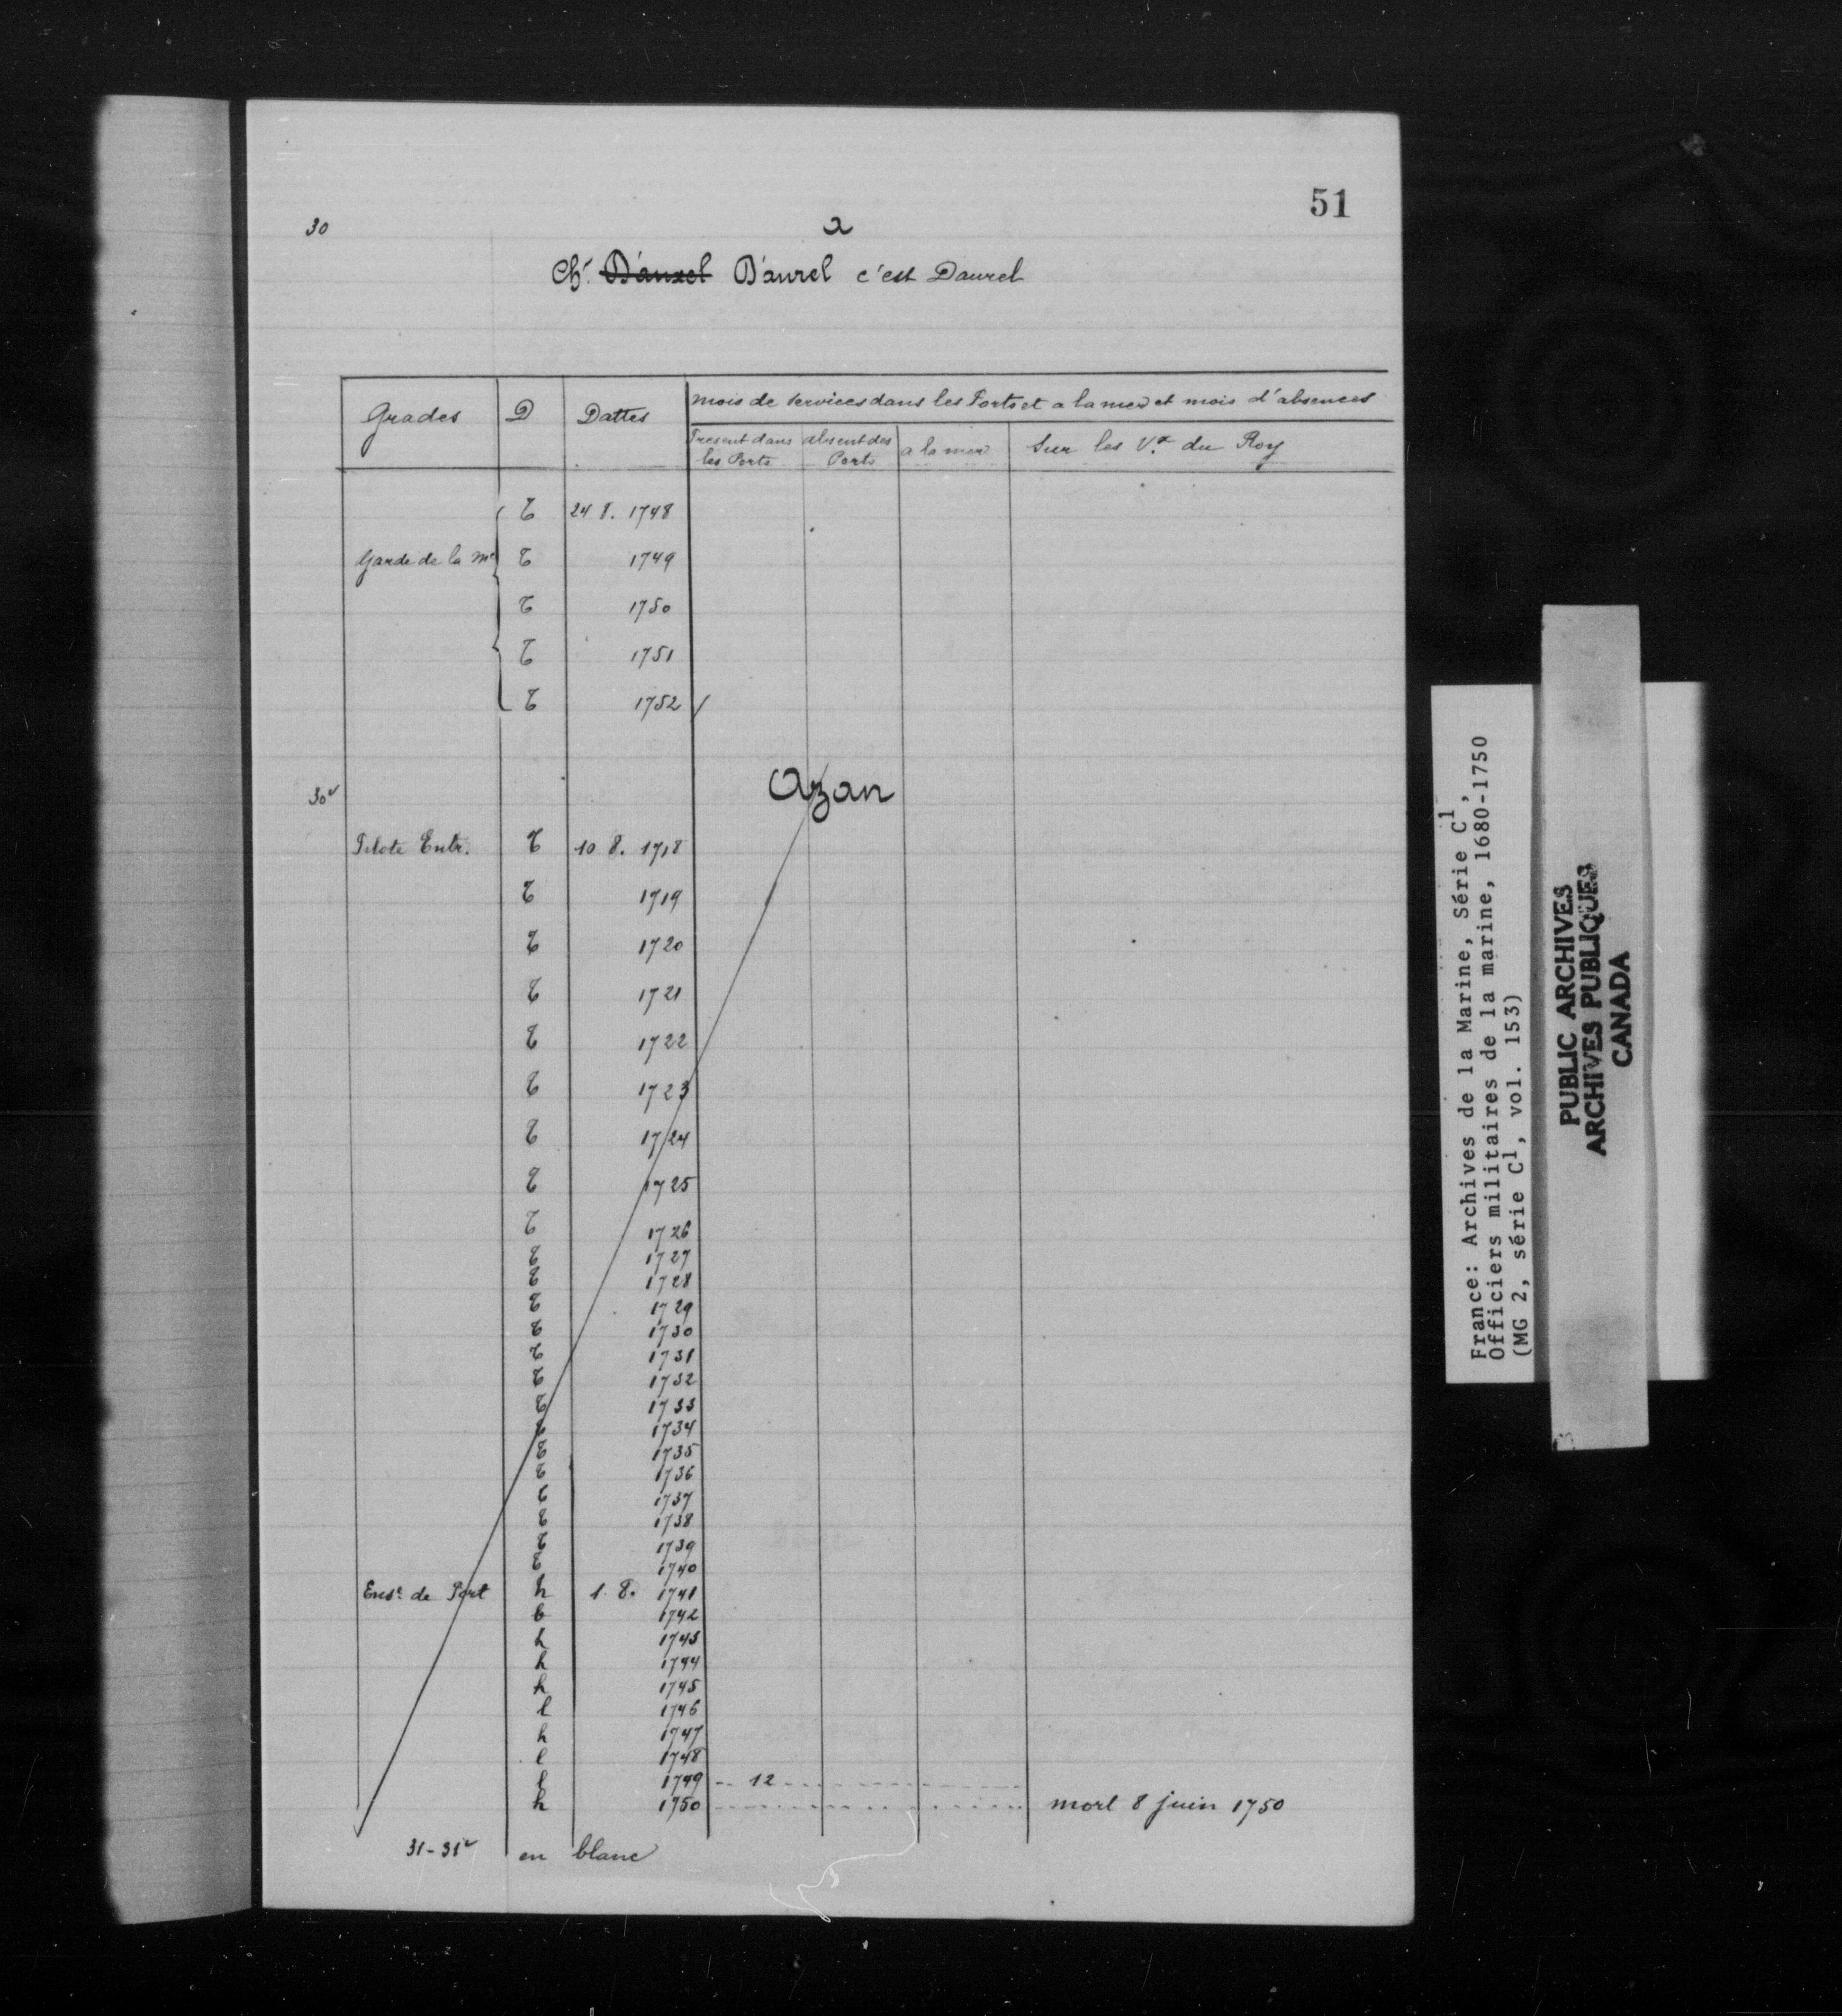 51
30
a
Chr. D'auxel D'aurel c'est Daurel
Grades D Dattes mois de services dans les Ports et a la mer et mois d'absences
Present dans les Ports absent des Ports a la mer Sur les Vx. du Roy
T 24 8. 1748
Garde de la me T 1749
T 1750
T 1751
T 1752
Azan
30v
Pilote Entr. T 10 8. 1718
T 1719
T 1720
T 1721
T 1722
T 1723
T 1724
T 1725
T 1726
T 1727
T 1728
T 1729
T 1730
T 1731
T 1732
T 1733
T 1734
T 1735
T 1736
T 1737
T 1738
T 1739
T 1740
Ense de Port h 1. 8. 1741
b 1742
h 1743
h 1744
h 1745
l 1746
h 1747
l 1748
l 1749 12
h 1750 mort 8 juin 1750
31-31v en blanc
France: Archives de la Marine, Série C1,
Officiers militaires de la marine, 1680-1750
(MG 2, série C1, vol. 153)
PUBLIC ARCHIVES
ARCHIVES PUBLIQUES
CANADA